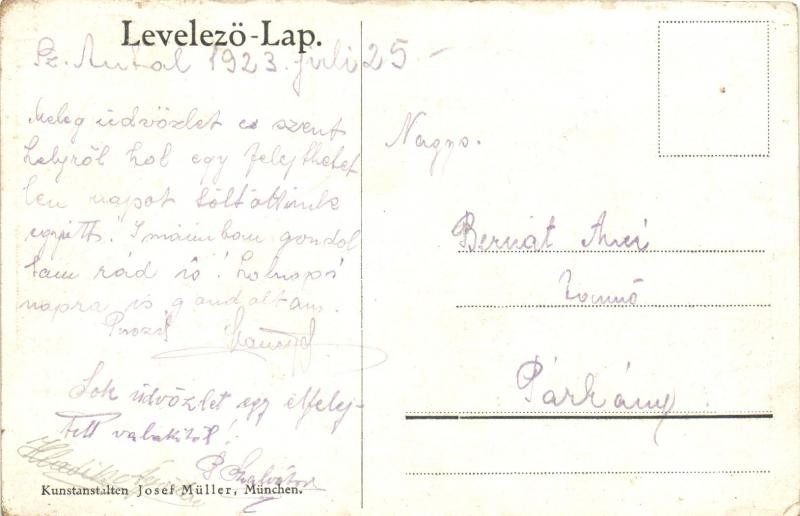 Levelező-Lap.
Sz. Antal 1923. juli 25-
Meleg üdvözlet e szent
helyről hol egy felejthetet
len napot töltöttünk
együtt. Imáimban gondol
tam rád is! holnapi
napra is gondoltam.
Puszil
Sok üdvözlet egy elfelej-
tett valakitől!
Kunstanstalten Josef Müller, München.
Nagys.
Bernát Anci
Párkány